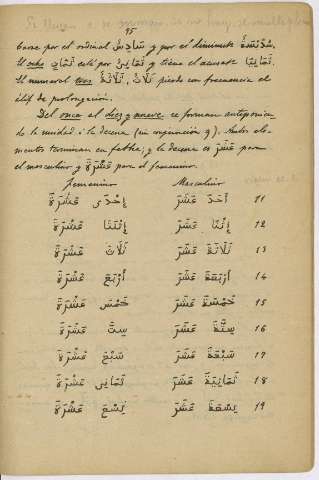 95
base por el ordinal سَادِسٌ y por el diminuto سُدَيْسَةٌ
El ocho ثَمَانٍ está por ثَمَانِيٌ y tiene el acusado ثَمَانِيًا
El numeral tres ثَلَاثٌ, ثَلَاثَةٌ pierde con frecuencia el
élif de prolongación.
Del once al diez y nueve se forman anteponien
do la unidad a la decena (sin conjunción y). Ambos ele-
mentos terminan en fatha; y la decena es عَشَرَ para
el masculino y عَشْرَةَ para el femenino.
Femenino Masculino
إِحْدَى عَشْرَةَ أَحَدَ عَشَرَ 11
إِثْنَتَا عَشْرَةَ إِثْنَا عَشَرَ 12
ثَلَاثَ عَشْرَةَ ثَلَاثَةَ عَشَرَ 13
أَرْبَعَ عَشْرَةَ أَرْبَعَةَ عَشَرَ 14
خَمْسَ عَشْرَةَ خَمْسَةَ عَشَرَ 15
سِتَّ عَشْرَةَ سِتَّةَ عَشَرَ 16
سَبْعَ عَشْرَةَ سَبْعَةَ عَشَرَ 17
ثَمَانِى عَشْرَةَ ثَمَانِيَةَ عَشَرَ 18
تِسْعَ عَشْرَةَ تِسْعَةَ عَشَرَ 19